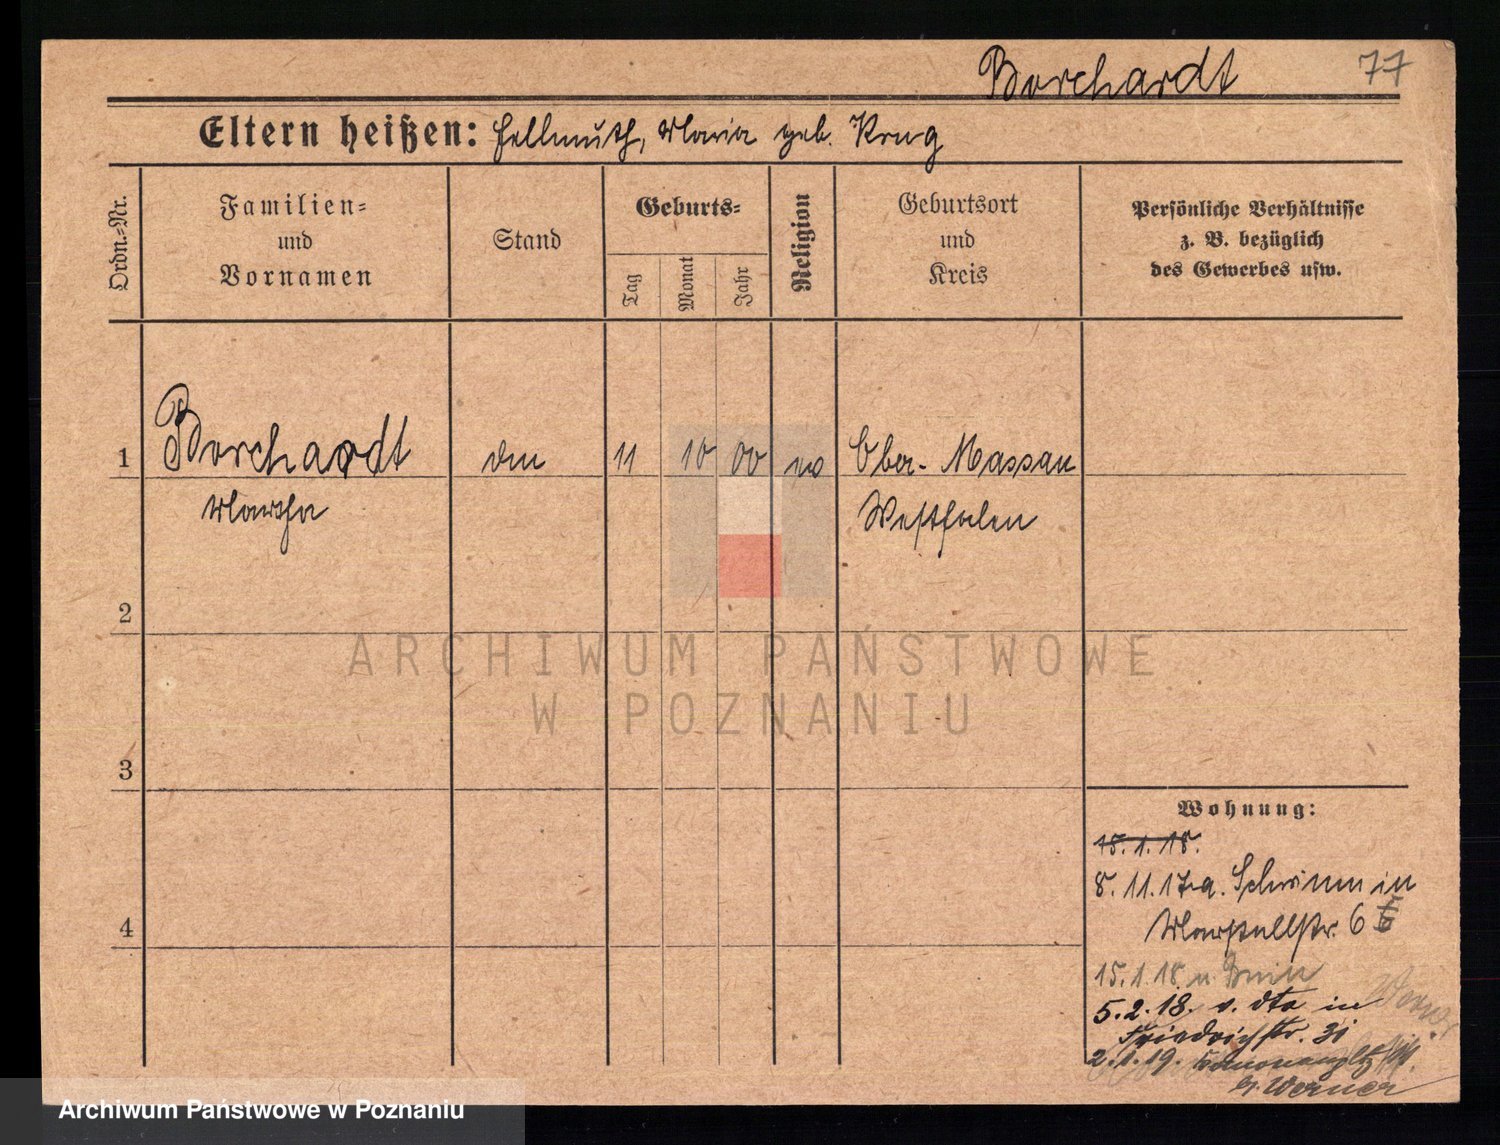 Borchardt 77
Eltern heißen: Hellmuth, Maria geb. Krug
Ordn.-Nr.
Familien- und Vornamen
Stand
Geburts-
Tag
Monat
Jahr
Religion
Geburtsort und Kreis
Persönliche Verhältnisse z. B. bezüglich des Gewerbes usw.
1 Borchardt 11 10 00 Ober-Massau
Martha Westfalen
2
ARCHIWUM PAŃSTWOWE
W POZNANIU
3
Wohnung:
18.1.18.
8.11.17 a. Schrimm in
4
Marstallstr. 6
15.1.18 n. Bnin
5.2.18. v. dto in
Friedrichstr. 31
2.1.19.
b. Werner
Archiwum Państwowe w Poznaniu